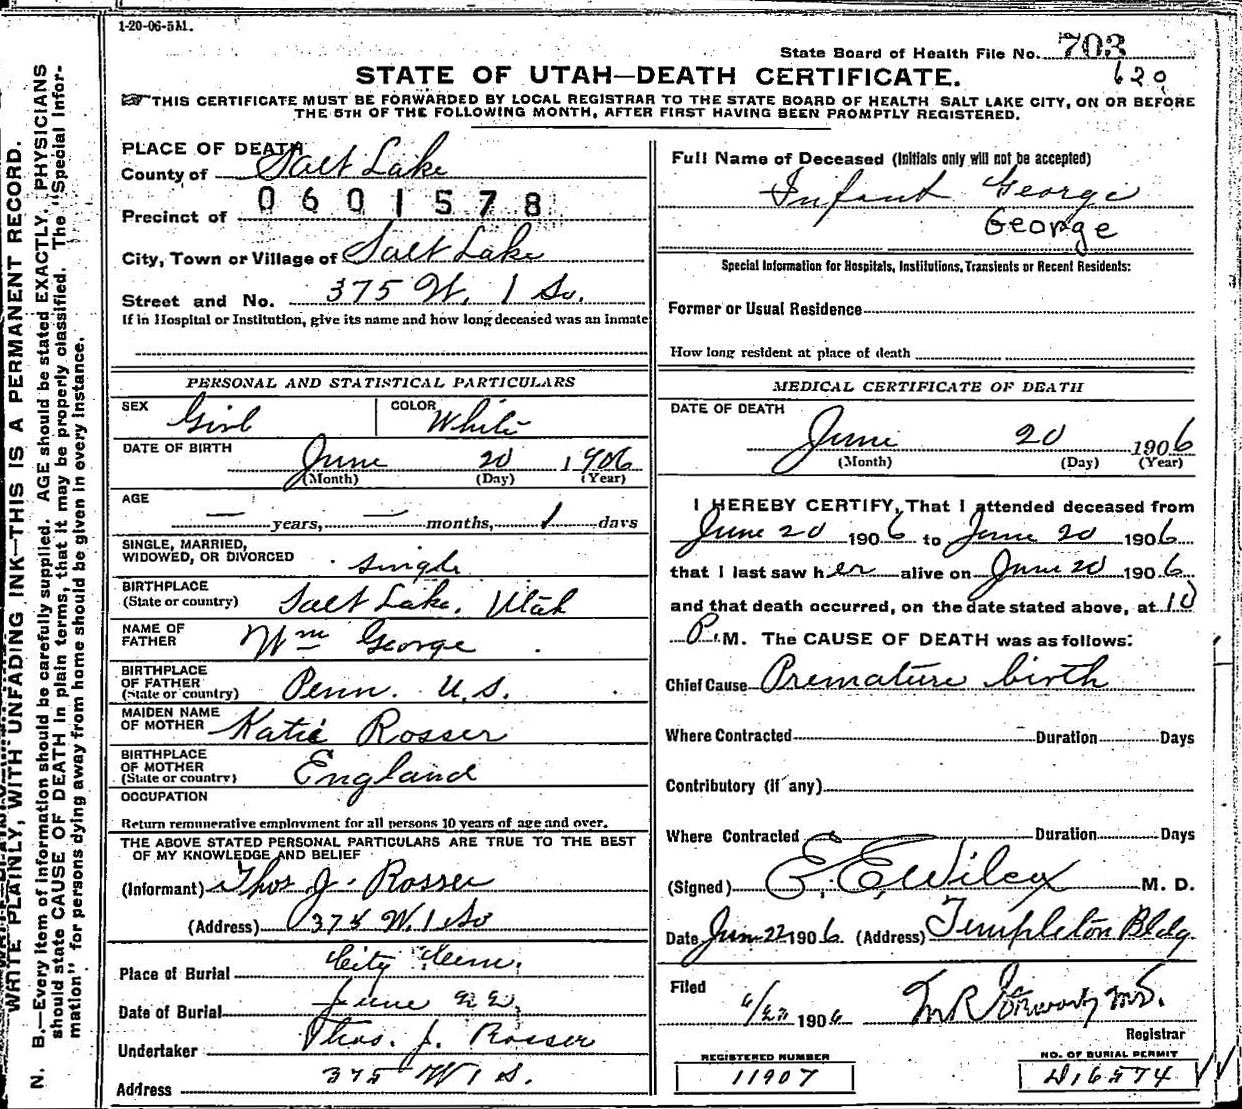 1-20-06-5M.
State Board of Health File No. 703
620
STATE OF UTAH—DEATH CERTIFICATE.
THIS CERTIFICATE MUST BE FORWARDED BY LOCAL REGISTRAR TO THE STATE BOARD OF HEALTH SALT LAKE CITY, ON OR BEFORE
THE 5TH OF THE FOLLOWING MONTH, AFTER FIRST HAVING BEEN PROMPTLY REGISTERED.
WRITE PLAINLY, WITH UNFADING INK—THIS IS A PERMANENT RECORD.
N. B.—Every item of information should be carefully supplied. AGE should be stated EXACTLY. PHYSICIANS
should state CAUSE OF DEATH in plain terms, that it may be properly classified. The "Special Infor-
mation" for persons dying away from home should be given in every instance.
PLACE OF DEATH
County of Salt Lake
0601578
Precinct of
City, Town or Village of Salt Lake
Street and No. 375 W. 1 So.
If in Hospital or Institution, give its name and how long deceased was an inmate
PERSONAL AND STATISTICAL PARTICULARS
SEX Girl COLOR White
DATE OF BIRTH June 20 1906
(Month) (Day) (Year)
AGE — years, — months, 1 days
SINGLE, MARRIED,
WIDOWED, OR DIVORCED single
BIRTHPLACE
(State or country) Salt Lake, Utah
NAME OF
FATHER Wm George
BIRTHPLACE
OF FATHER
(State or country) Penn. U.S.
MAIDEN NAME
OF MOTHER Katie Rosser
BIRTHPLACE
OF MOTHER
(State or country) England
OCCUPATION
Return remunerative employment for all persons 10 years of age and over.
THE ABOVE STATED PERSONAL PARTICULARS ARE TRUE TO THE BEST
OF MY KNOWLEDGE AND BELIEF
(Informant) Thos J. Rosser
(Address) 375 W. 1 So
Place of Burial City Cem.
Date of Burial June 22,
Undertaker Thos. J. Rosser
Address 375 W 1 S.
Full Name of Deceased (Initials only will not be accepted)
Infant George
George
Special Information for Hospitals, Institutions, Transients or Recent Residents:
Former or Usual Residence
How long resident at place of death
MEDICAL CERTIFICATE OF DEATH
DATE OF DEATH
June 20 1906
(Month) (Day) (Year)
I HEREBY CERTIFY, That I attended deceased from
June 20 1906 to June 20 1906
that I last saw her alive on June 20 1906
and that death occurred, on the date stated above, at 10
P. M. The CAUSE OF DEATH was as follows:
Chief Cause Premature birth
Where Contracted Duration Days
Contributory (if any)
Where Contracted Duration Days
(Signed) E. E. Wilcox M. D.
Date Jun 22 1906. (Address) Templeton Bldg.
Filed
1906 M.D.
Registrar
REGISTERED NUMBER
11907
NO. OF BURIAL PERMIT
16574